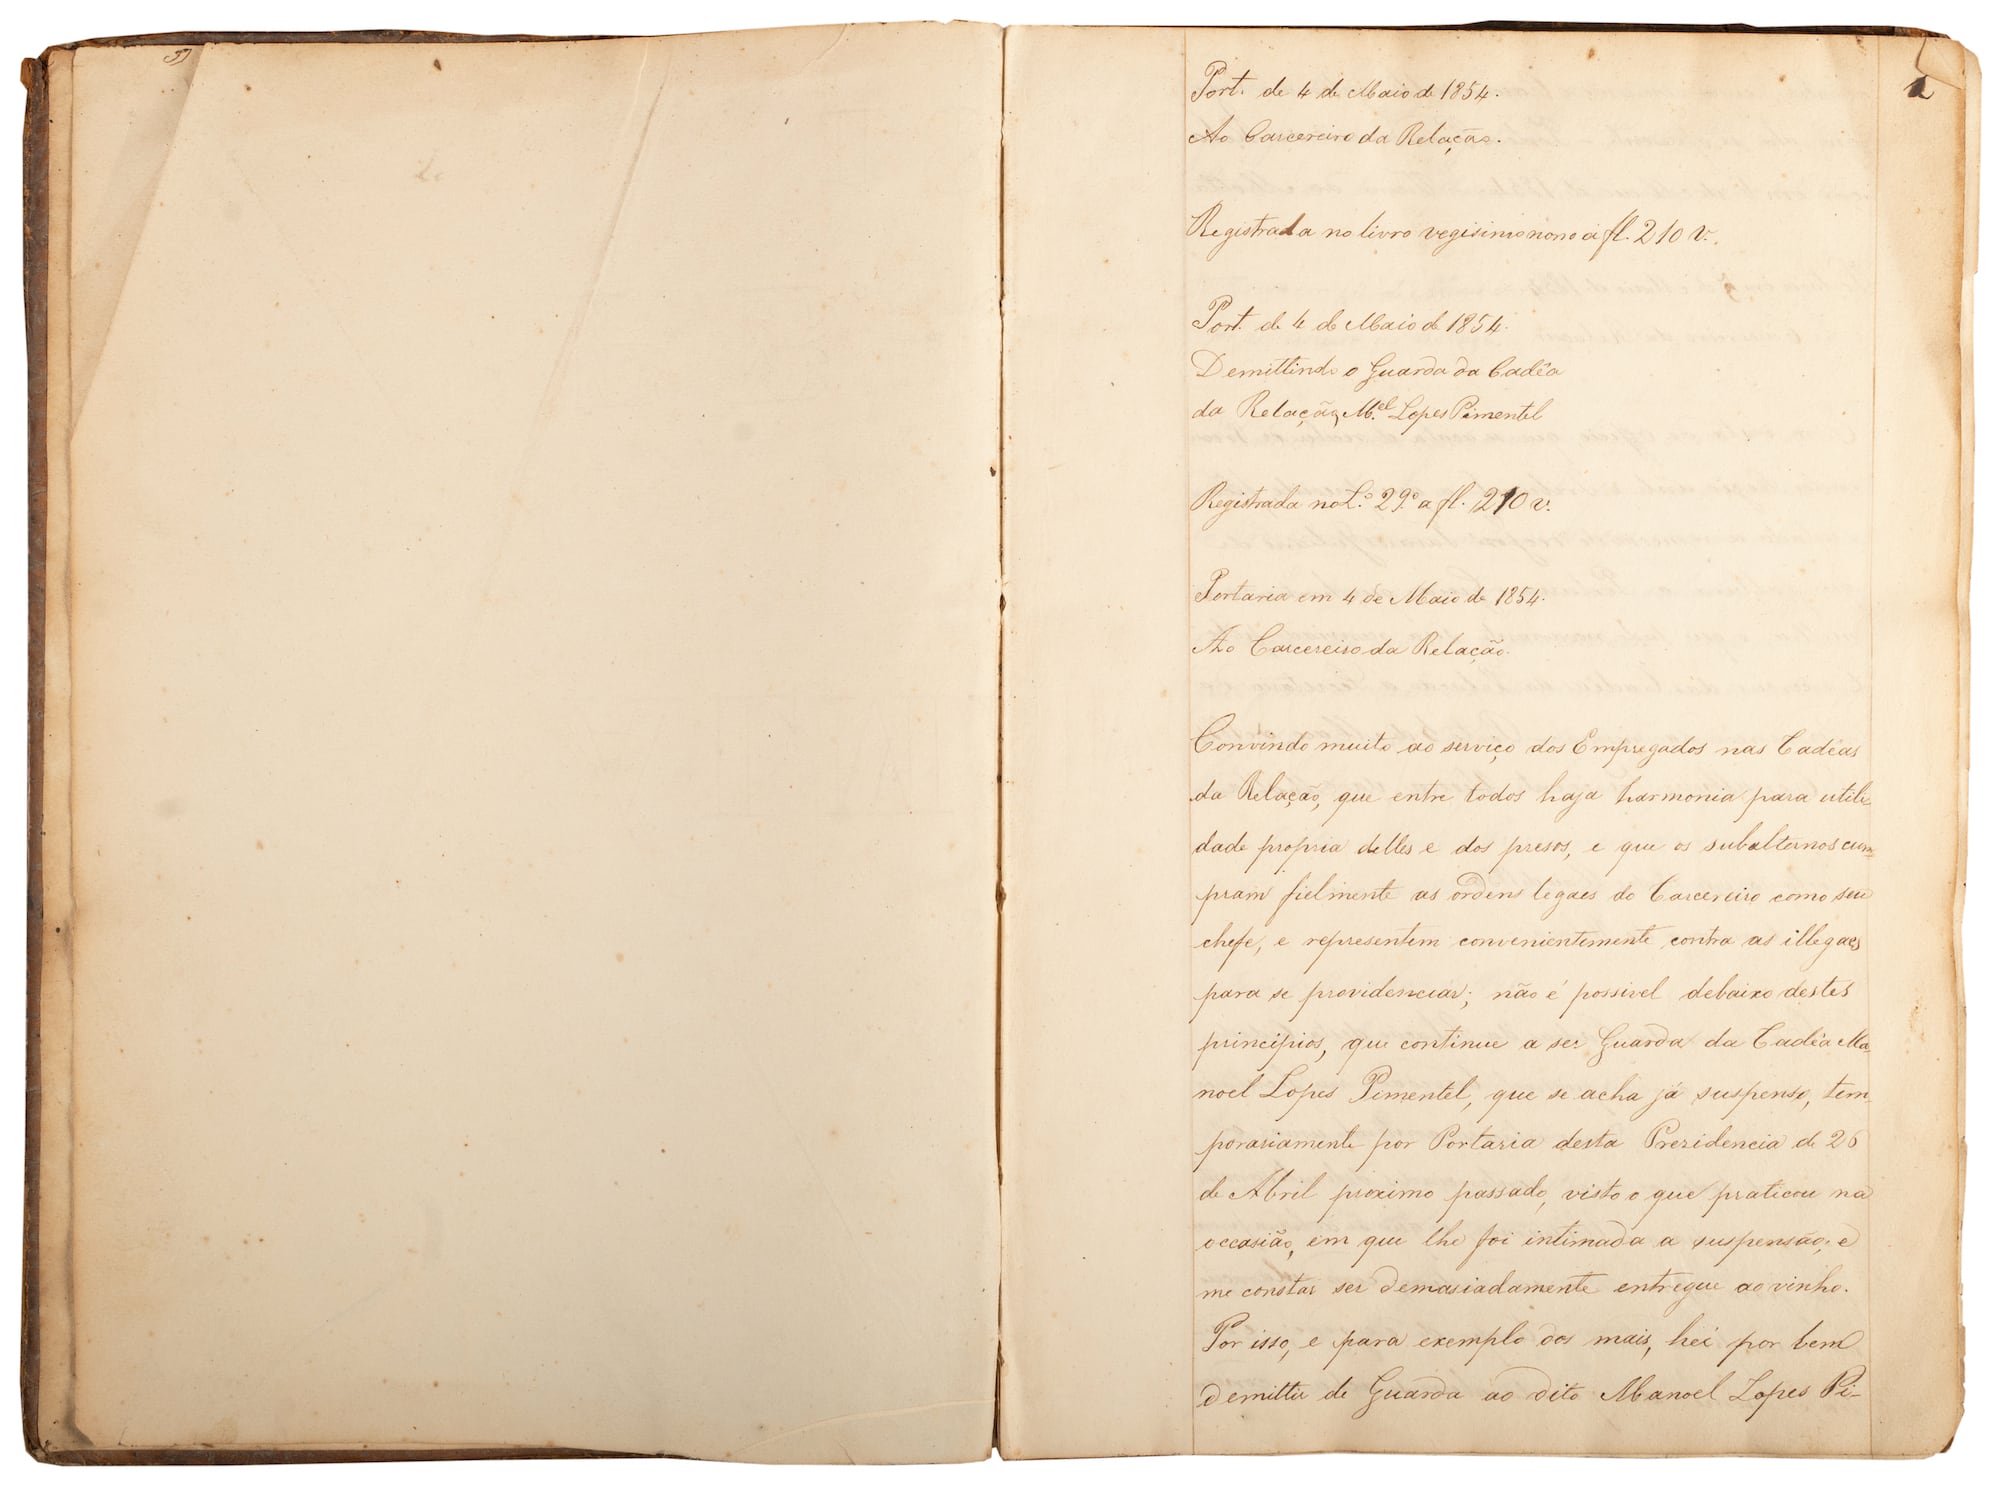 1
Port. de 4 de Maio de 1854.
Ao Carcereiro da Relação.
Registrada no livro vegisimo nono a fl. 210 v.
Port. de 4 de Maio de 1854.
Demittindo o Guarda da Cadêa
da Relação, M.el Lopes Pimentel
Registrada no L.º 29.º a fl. 210 v.
Portaria em 4 de Maio de 1854.
Ao Carcereiro da Relação.
Convindo muito ao serviço dos Empregados nas Cadêas
da Relação, que entre todos haja harmonia para utili-
dade propria delles e dos presos, e que os subalternos cum-
pram fielmente as ordens legaes do Carcereiro como seu
chefe, e representem convenientemente contra as illegaes
para se providenciar; não é possivel debaixo destes
principios, que continue a ser Guarda da Cadêa Ma-
noel Lopes Pimentel, que se acha já suspenso, tem-
porariamente por Portaria desta Prezidencia de 26
de Abril proximo passado, visto o que praticou na
occasião, em que lhe foi intimada a suspensão, e
me constar ser demasiadamente entregue ao vinho.
Por isso, e para exemplo dos mais, hei por bem
demittir de Guarda ao dito Manoel Lopes Pi-